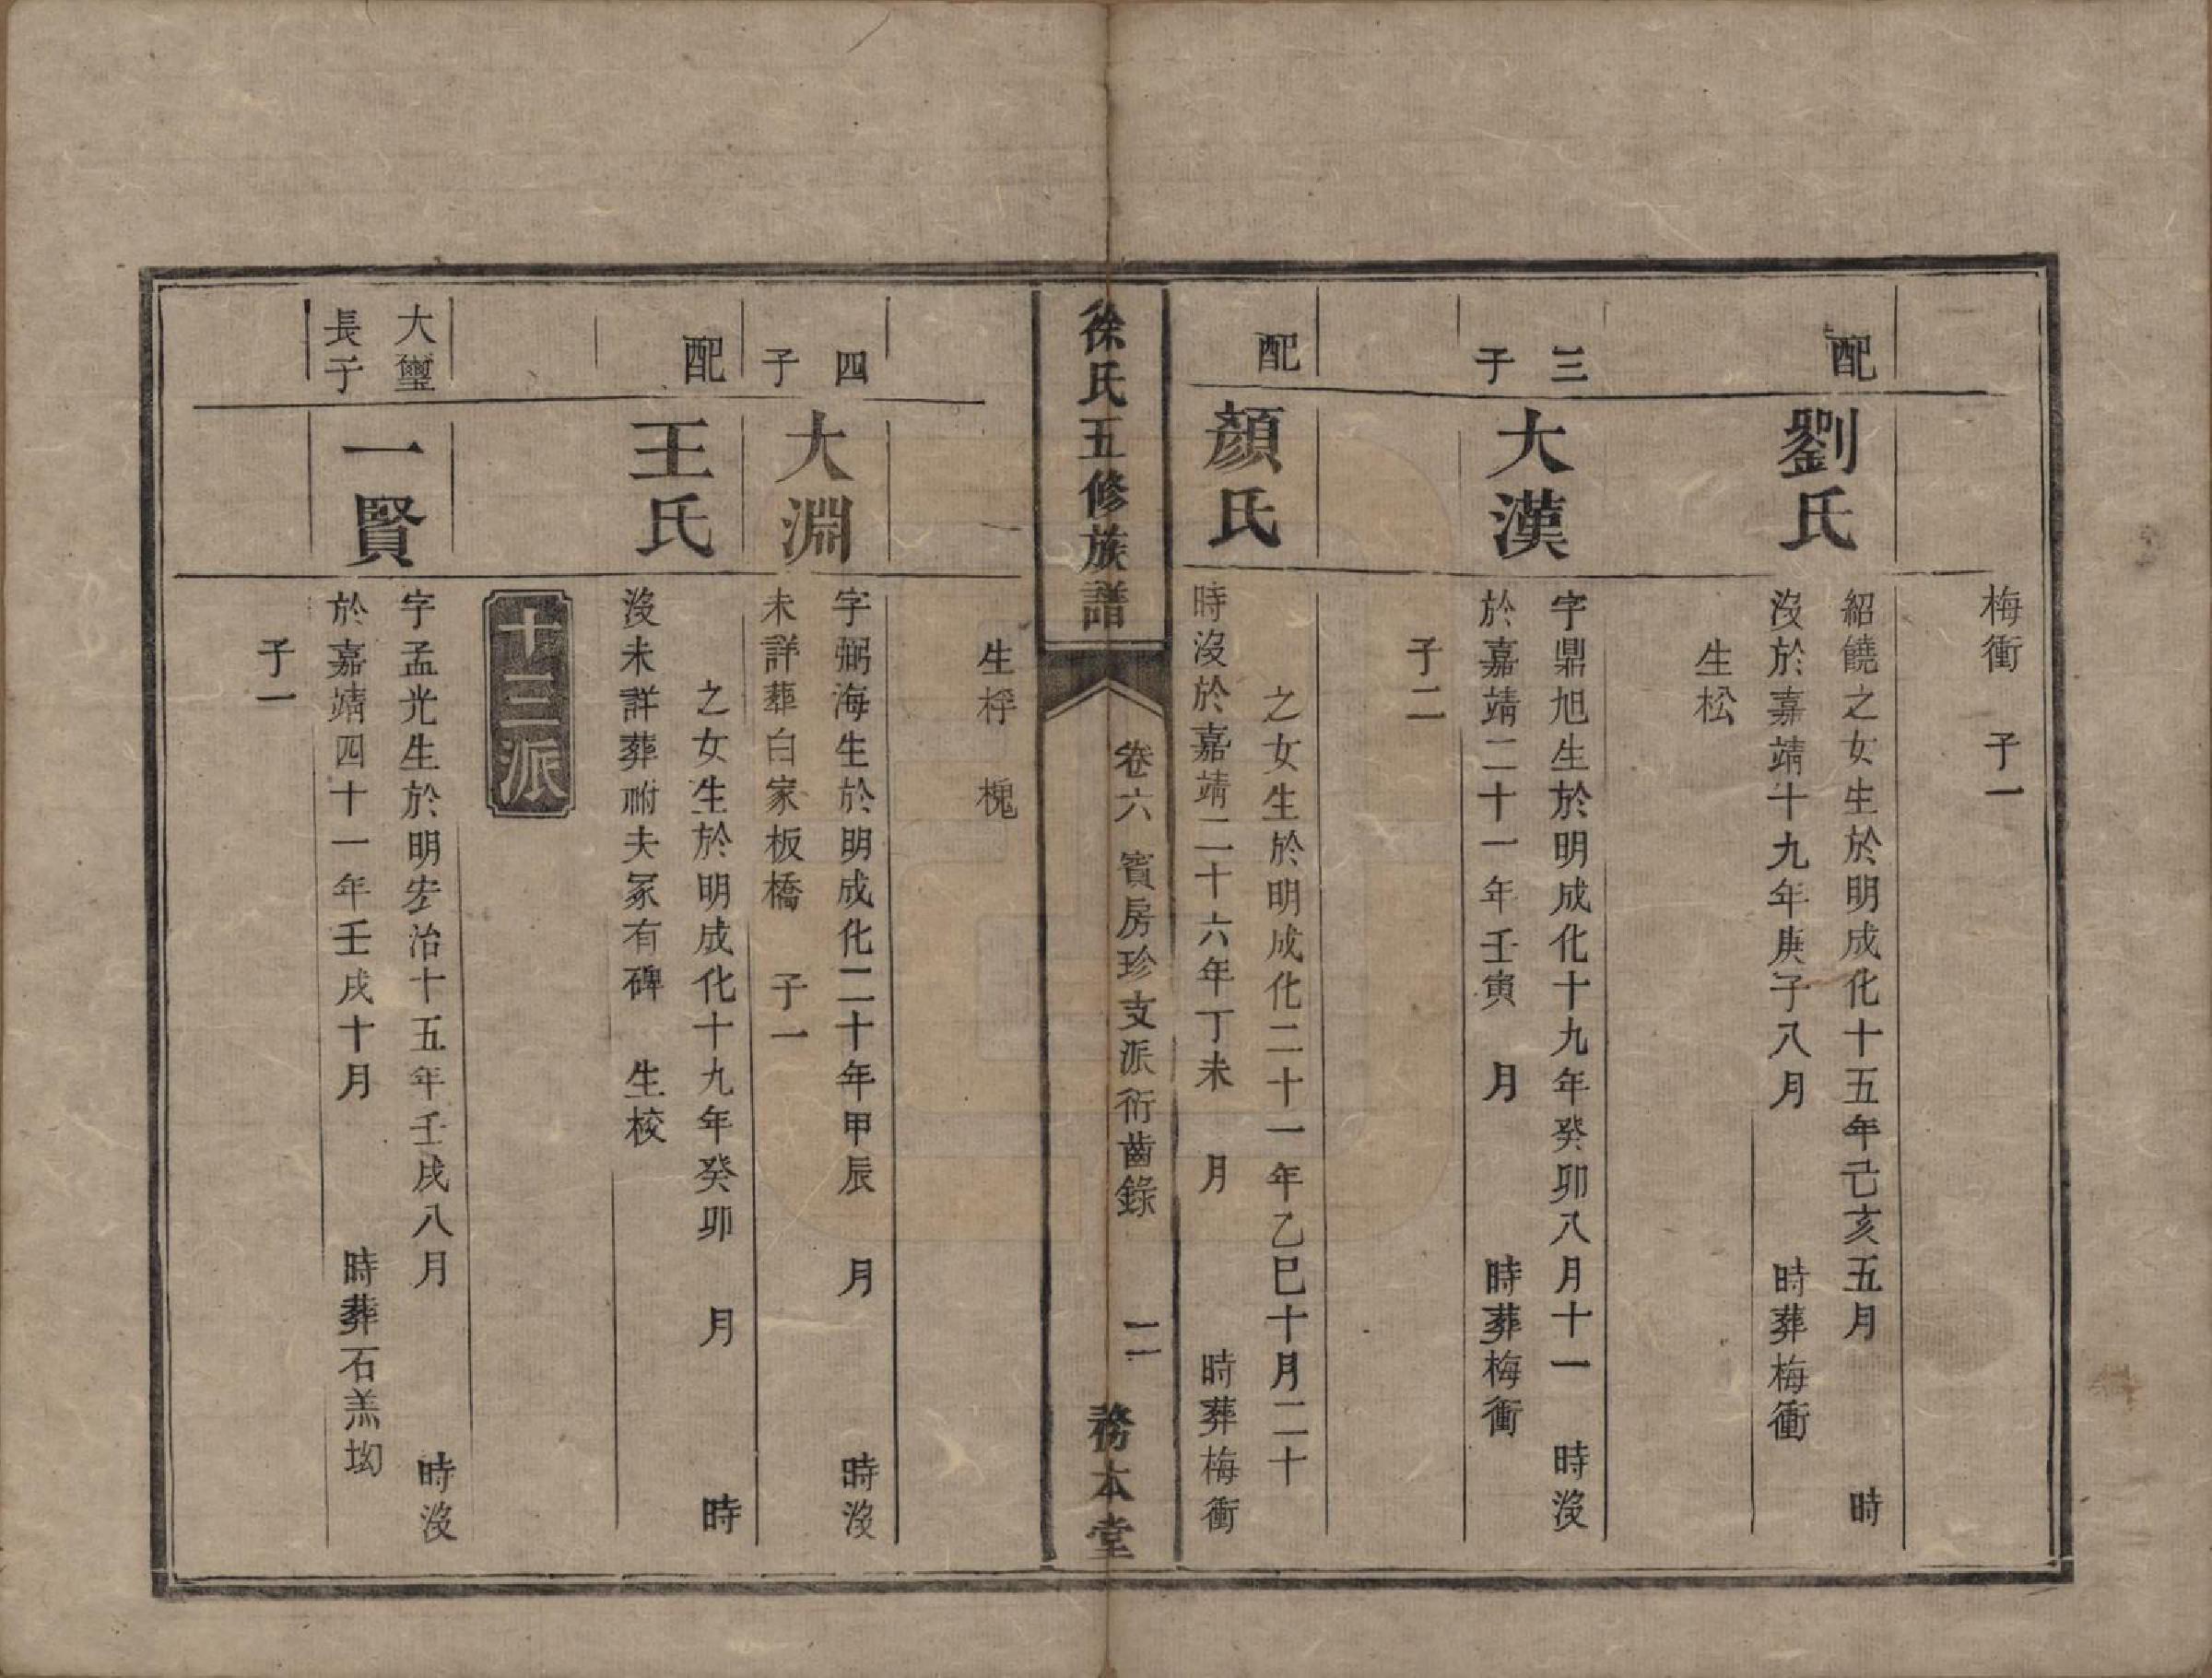 梅衝　子一
配
劉氏
紹饒之女生於明成化十五年己亥五月　時
沒於嘉靖十九年庚子八月　時葬梅衝
生松
三
子
大漢
字鼎旭生於明成化十九年癸卯八月十一　時沒
於嘉靖二十一年壬寅　月　時葬梅衝
子二
配
顏氏
之女生於明成化二十一年乙巳十月二十
時沒於嘉靖二十六年丁未　月　時葬梅衝
徐氏五修族譜
卷六　賓房珍支派衍齒錄
二
務本堂
生桴　槐
四
子
大淵
字弼海生於明成化二十年甲辰　月　時沒
未詳葬白家板橋　子一
配
王氏
之女生於明成化十九年癸卯　月　時
沒未詳葬祔夫冢有碑　生校
十三派
大璽
長子
一賢
字孟光生於明宏治十五年壬戌八月　時沒
於嘉靖四十一年壬戌十月　時葬石羔坳
子一